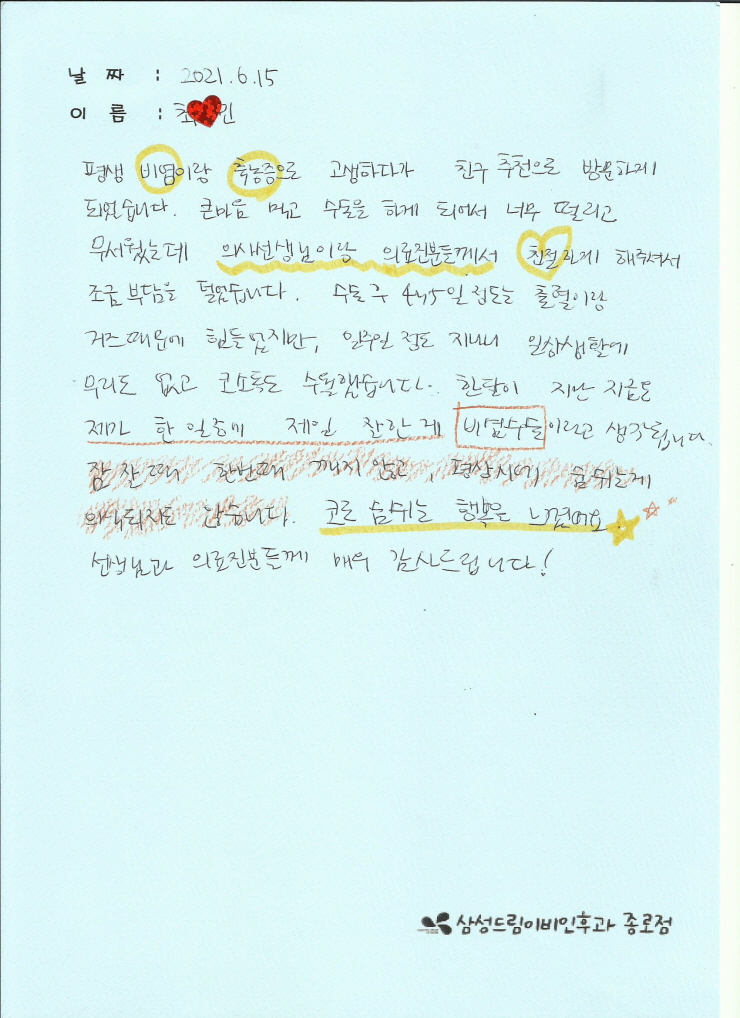 날 짜 : 2021.6.15
이 름 : 최 민
평생 비염이랑 축농증으로 고생하다가 친구 추천으로 방문하게
되었습니다. 큰마음 먹고 수술을 하게 되어서 너무 떨리고
무서웠는데 의사선생님이랑 의료진분들께서 친절하게 해주셔서
조금 부담을 덜었습니다. 수술 후 4~5일 정도는 출혈이랑
거즈때문에 힘들었지만, 일주일 정도 지나니 일상생활에
무리도 없고 코소독도 수월했습니다. 한달이 지난 지금은
제가 한 일중에 제일 잘한 게 비염수술이라고 생각됩니다.
잠 잘때 한번때 깨지 않고, 평상시에 숨쉬는게
의식되지도 않습니다. 코로 숨쉬는 행복을 느꼈어요
선생님과 의료진분들께 매우 감사드립니다!
삼성드림이비인후과 종로점